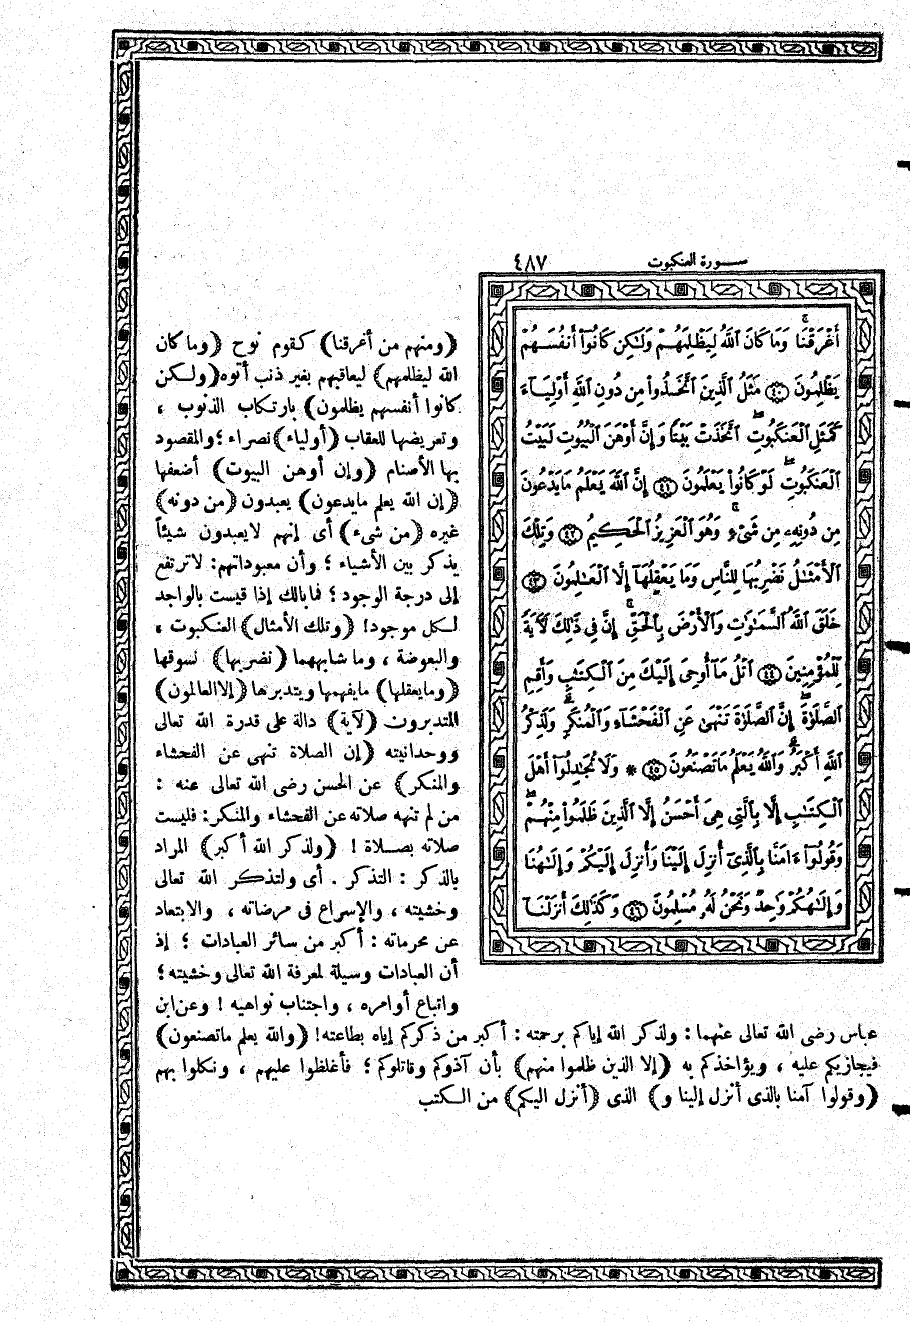 سورة العنكبوت ٤٨٧
أَغْرَقْنَا وَمَا كَانَ ٱللَّهُ لِيَظْلِمَهُمْ وَلَٰكِن كَانُوٓا۟ أَنفُسَهُمْ
يَظْلِمُونَ ٤٠ مَثَلُ ٱلَّذِينَ ٱتَّخَذُوا۟ مِن دُونِ ٱللَّهِ أَوْلِيَآءَ
كَمَثَلِ ٱلْعَنكَبُوتِ ٱتَّخَذَتْ بَيْتًا وَإِنَّ أَوْهَنَ ٱلْبُيُوتِ لَبَيْتُ
ٱلْعَنكَبُوتِ لَوْ كَانُوا۟ يَعْلَمُونَ ٤١ إِنَّ ٱللَّهَ يَعْلَمُ مَا يَدْعُونَ
مِن دُونِهِۦ مِن شَىْءٍ وَهُوَ ٱلْعَزِيزُ ٱلْحَكِيمُ ٤٢ وَتِلْكَ
ٱلْأَمْثَٰلُ نَضْرِبُهَا لِلنَّاسِ وَمَا يَعْقِلُهَآ إِلَّا ٱلْعَٰلِمُونَ ٤٣
خَلَقَ ٱللَّهُ ٱلسَّمَٰوَٰتِ وَٱلْأَرْضَ بِٱلْحَقِّ إِنَّ فِى ذَٰلِكَ لَءَايَةً
لِّلْمُؤْمِنِينَ ٤٤ ٱتْلُ مَآ أُوحِىَ إِلَيْكَ مِنَ ٱلْكِتَٰبِ وَأَقِمِ
ٱلصَّلَوٰةَ إِنَّ ٱلصَّلَوٰةَ تَنْهَىٰ عَنِ ٱلْفَحْشَآءِ وَٱلْمُنكَرِ وَلَذِكْرُ
ٱللَّهِ أَكْبَرُ وَٱللَّهُ يَعْلَمُ مَا تَصْنَعُونَ ٤٥ * وَلَا تُجَٰدِلُوٓا۟ أَهْلَ
ٱلْكِتَٰبِ إِلَّا بِٱلَّتِى هِىَ أَحْسَنُ إِلَّا ٱلَّذِينَ ظَلَمُوا۟ مِنْهُمْ
وَقُولُوٓا۟ ءَامَنَّا بِٱلَّذِىٓ أُنزِلَ إِلَيْنَا وَأُنزِلَ إِلَيْكُمْ وَإِلَٰهُنَا
وَإِلَٰهُكُمْ وَٰحِدٌ وَنَحْنُ لَهُۥ مُسْلِمُونَ ٤٦ وَكَذَٰلِكَ أَنزَلْنَآ
(ومنهم من أغرقنا) كقوم نوح (وما كان
الله ليظلمهم) ليعاقبهم بغير ذنب أتوه (ولكن
كانوا أنفسهم يظلمون) بارتكاب الذنوب ،
وتعريضها للعقاب (أولياء) نصراء ؛ والمقصود
بها الأصنام (وإن أوهن البيوت) أضعفها
(إن الله يعلم مايدعون) يعبدون (من دونه)
غيره (من شىء) أى إنهم لايعبدون شيئاً
يذكر بين الأشياء ؛ وأن معبوداتهم : لاترتفع
إلى درجة الوجود ؛ فمابالك إذا قيست بالواجد
لكل موجود ! (وتلك الأمثال) العنكبوت ،
والبعوضة ، وما شابههما (نضربها) نسوقها
(ومايعقلها) مايفهمها ويتدبرها (إلا العالمون)
المتدبرون (لآية) دالة على قدرة الله تعالى
ووحدانيته (إن الصلاة تنهى عن الفحشاء
والمنكر) عن الحسن رضى الله تعالى عنه :
من لم تنهه صلاته عن الفحشاء والمنكر : فليست
صلاته بصلاة ! (ولذكر الله أكبر) المراد
بالذكر : التذكر . أى ولتذكر الله تعالى
وخشيته ، والإسراع فى مرضاته ، والابتعاد
عن محرماته : أكبر من سائر العبادات ؛ إذ
أن العبادات وسيلة لمعرفة الله تعالى وخشيته ؛
واتباع أوامره ، واجتناب نواهيه ! وعن ابن
عباس رضى الله تعالى عنهما : ولذكر الله إياكم برحمته : أكبر من ذكركم إياه بطاعته ! (والله يعلم ماتصنعون)
فيجازيكم عليه ، ويؤاخذكم به (إلا الذين ظلموا منهم) بأن آذوكم وقاتلوكم ؛ فأغلظوا عليهم ، ونكلوا بهم
(وقولوا آمنا بالذى أنزل إلينا و) الذى (أنزل اليكم) من الكتب